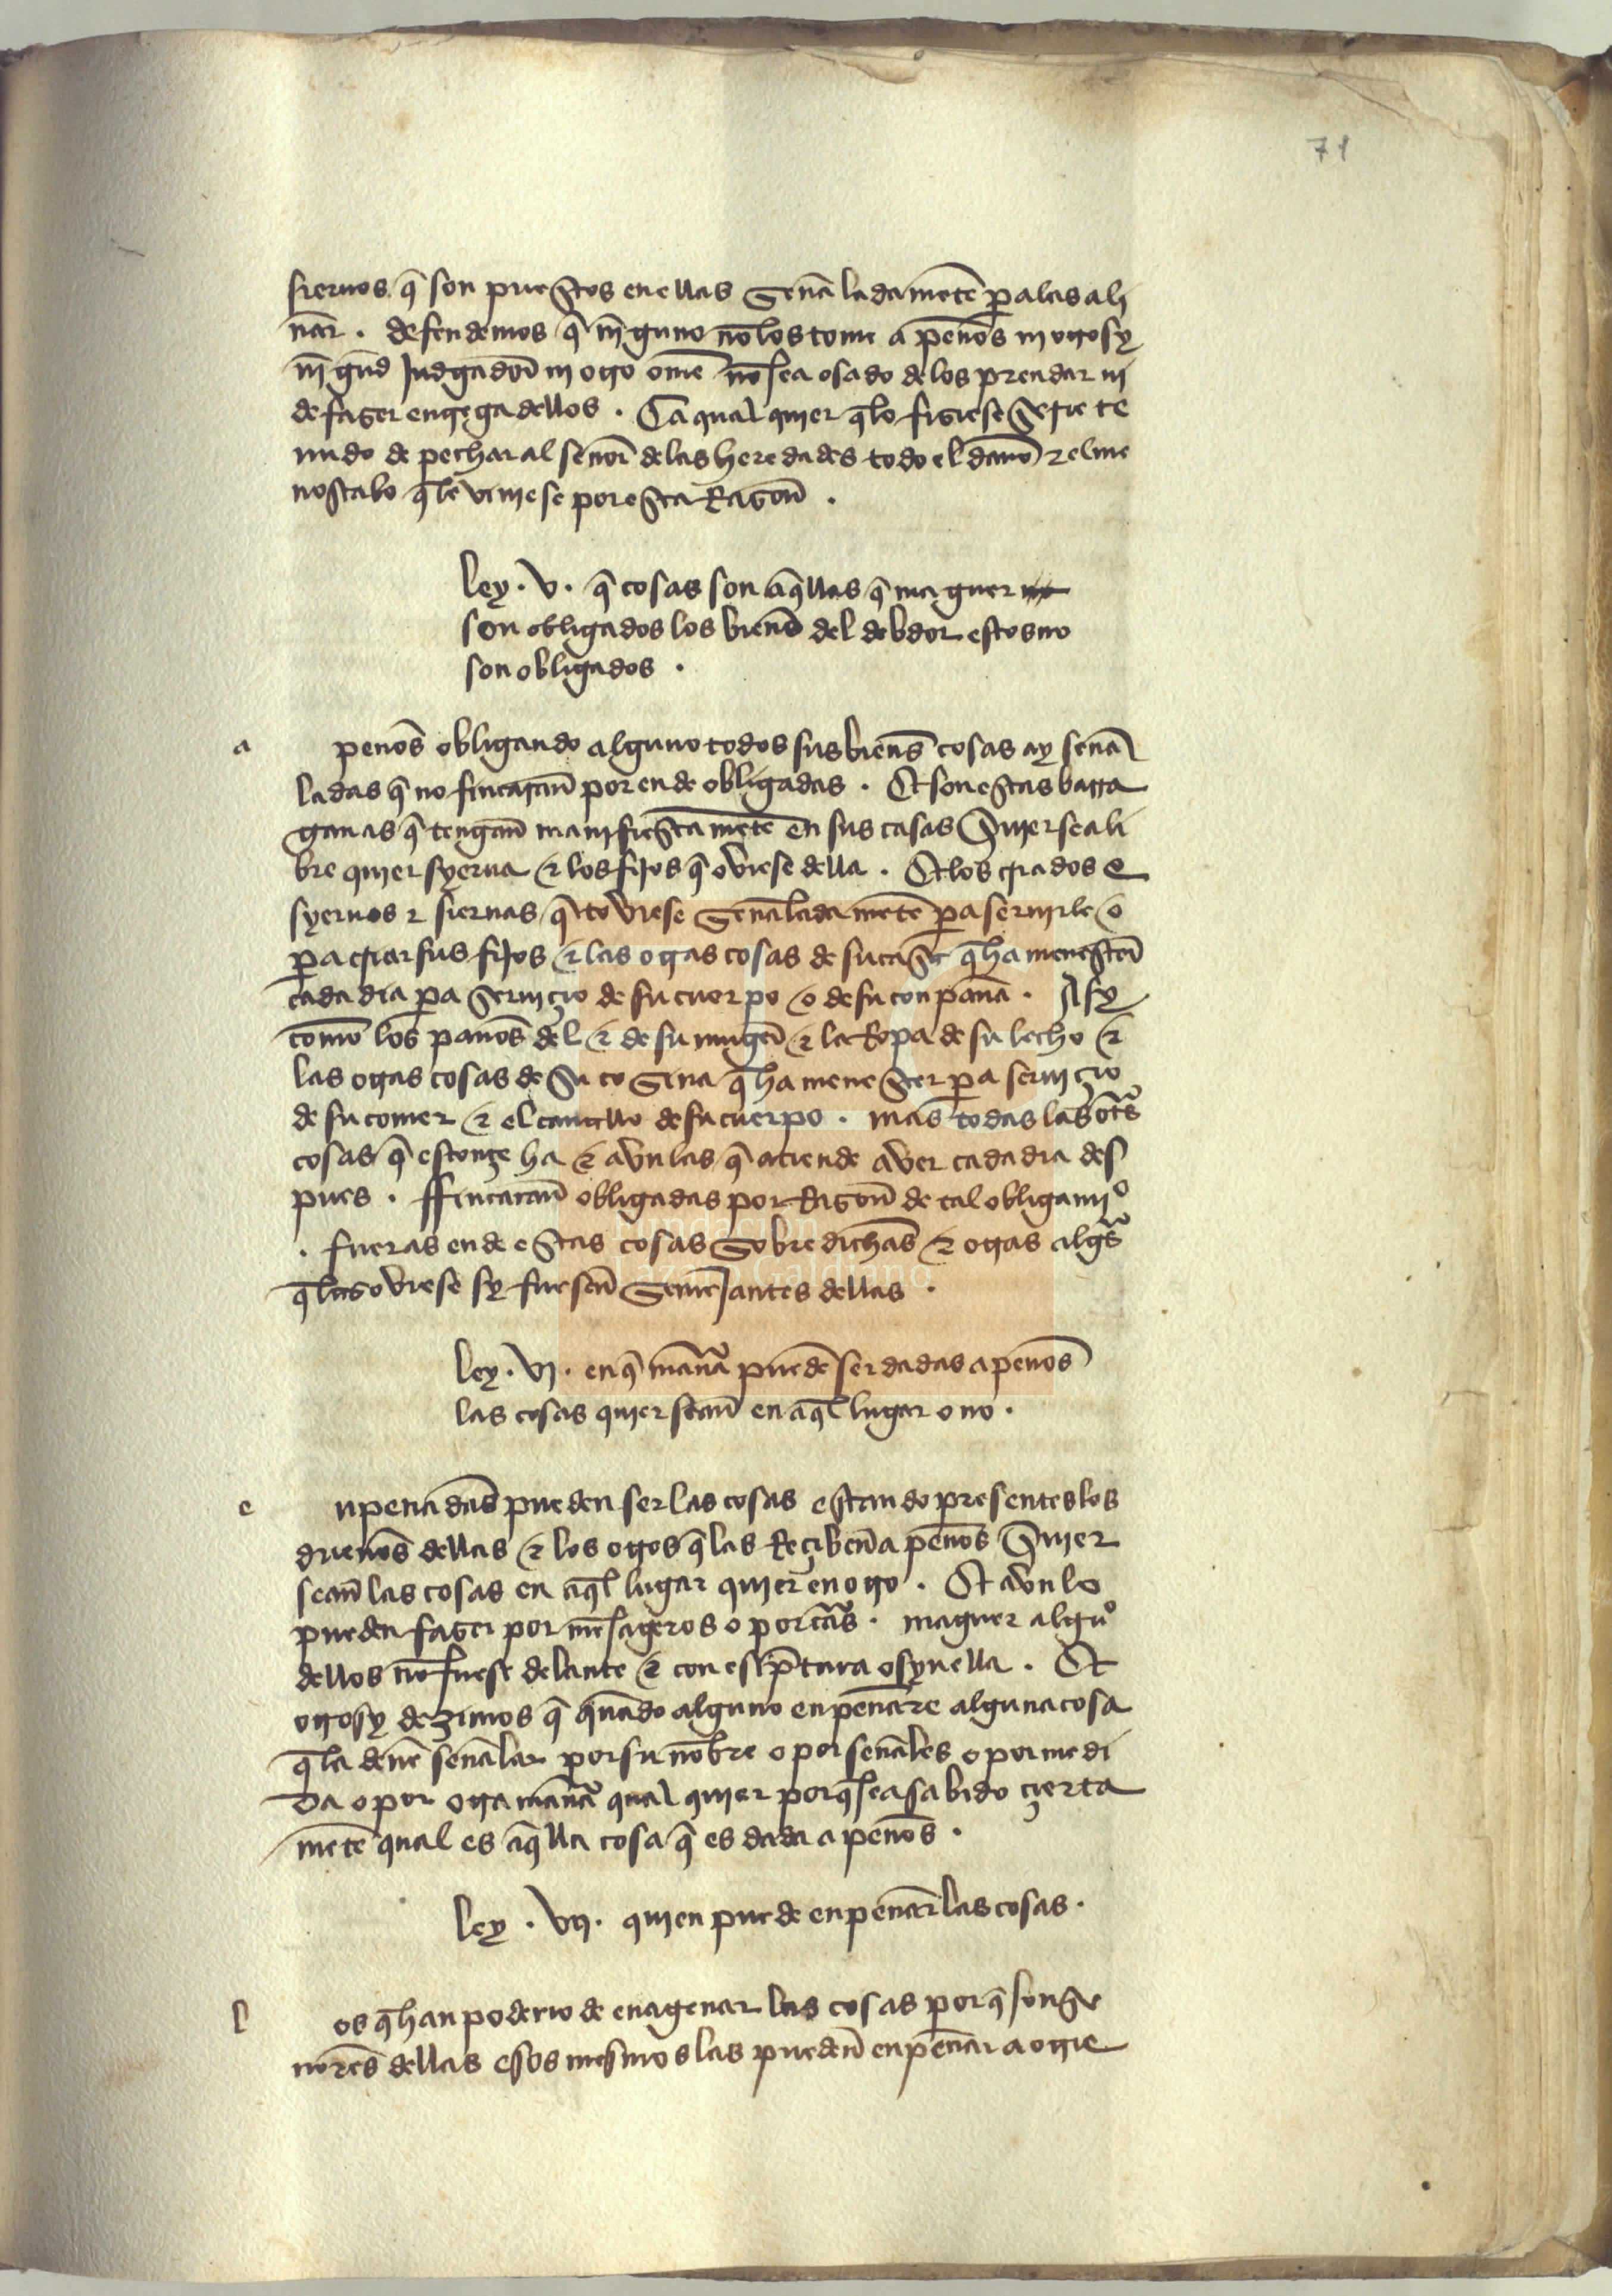 71
sieruos q̃ son puestos enellas señaladamẽte p̃a las ali
ñar . defendemos q̃ nĩguno nõ los tome a peños nj otrosy
nĩgũd Judgador̃ nj otro om̃e nõ sea osado delos prendar nj
defazer entrega dellos . Ca qual quier q̃ lo fiziese serie te
nudo de pechar al señor̃ delas heredades todo el dãno ⁊ el me
noscabo q̃ le viniese por esta Razoñ .
Ley . v . q̃ cosas son aq̃llas q̃ maguer
son obligados los bienẽs del debdor estos no
son obligados .
a peños obligando alguno todos sus bienẽs cosas ay señã
ladas q̃ no fincarañ por ende obligadas . Et son estas barra
ganas q̃ tengañ manifiestamẽte en sus casas Quier sea li
bre quier syerua ⁊ los fijos q̃ oviese della . Et los criados e
syeruos ⁊ sieruas q̃ toviese señaladamẽte p̃a seruirle o
p̃a criar sus fijos ⁊ las otras cosas de su casa q̃ ha menester̃
cada dia p̃a seruiçio de su cuerpo o de su conpaña . Asy
como los paños del ⁊ de su muger̃ ⁊ la Ropa de su lecho ⁊
las otras cosas de su cosina q̃ ha menester p̃a seruiçio
de su comer ⁊ el cauallo de su cuerpo . mas todas las ot̃s
cosas q̃ estonçe ha ⁊ avn las q̃ atiende aver cada dia des
pues . ffincarañ obligadas por Razoñ de tal obligamiº
. fueras ende estas cosas sobre dichas ⁊ otras alg̃s
q̃ las oviese sy fueseñ semejantes dellas .
Ley . vj . en q̃ mañã pueden ser dadas a peños
las cosas quier seañ en aq̃l lugar o no .
e npeñadas pueden ser las cosas estando presentes los
dueños dellas ⁊ los otros q̃ las Reçibeñ a peños Quier
seañ las cosas en aq̃l lugar quier en otro . Et avn lo
pueden fazer por mẽsageros o por cãs . maguer alguº
dellos nõ fuese delante ⁊ con esc̃ptura o syn ella . Et
otrosy dezimos q̃ quãdo alguno enpeñare alguna cosa
q̃ la deue señalar por su nõbre o por señales o por medi
da o por otra mañã qual quier por q̃ sea sabido çierta
mẽte qual es aq̃lla cosa q̃ es dada a peños .
Ley . vij . quien puede enpeñar las cosas .
l os q̃ han poderio de enagenar las cosas por q̃ son se
ñores dellas esos mesmos las puedeñ enpeñar a otrie
Fundación
Lázaro Galdiano